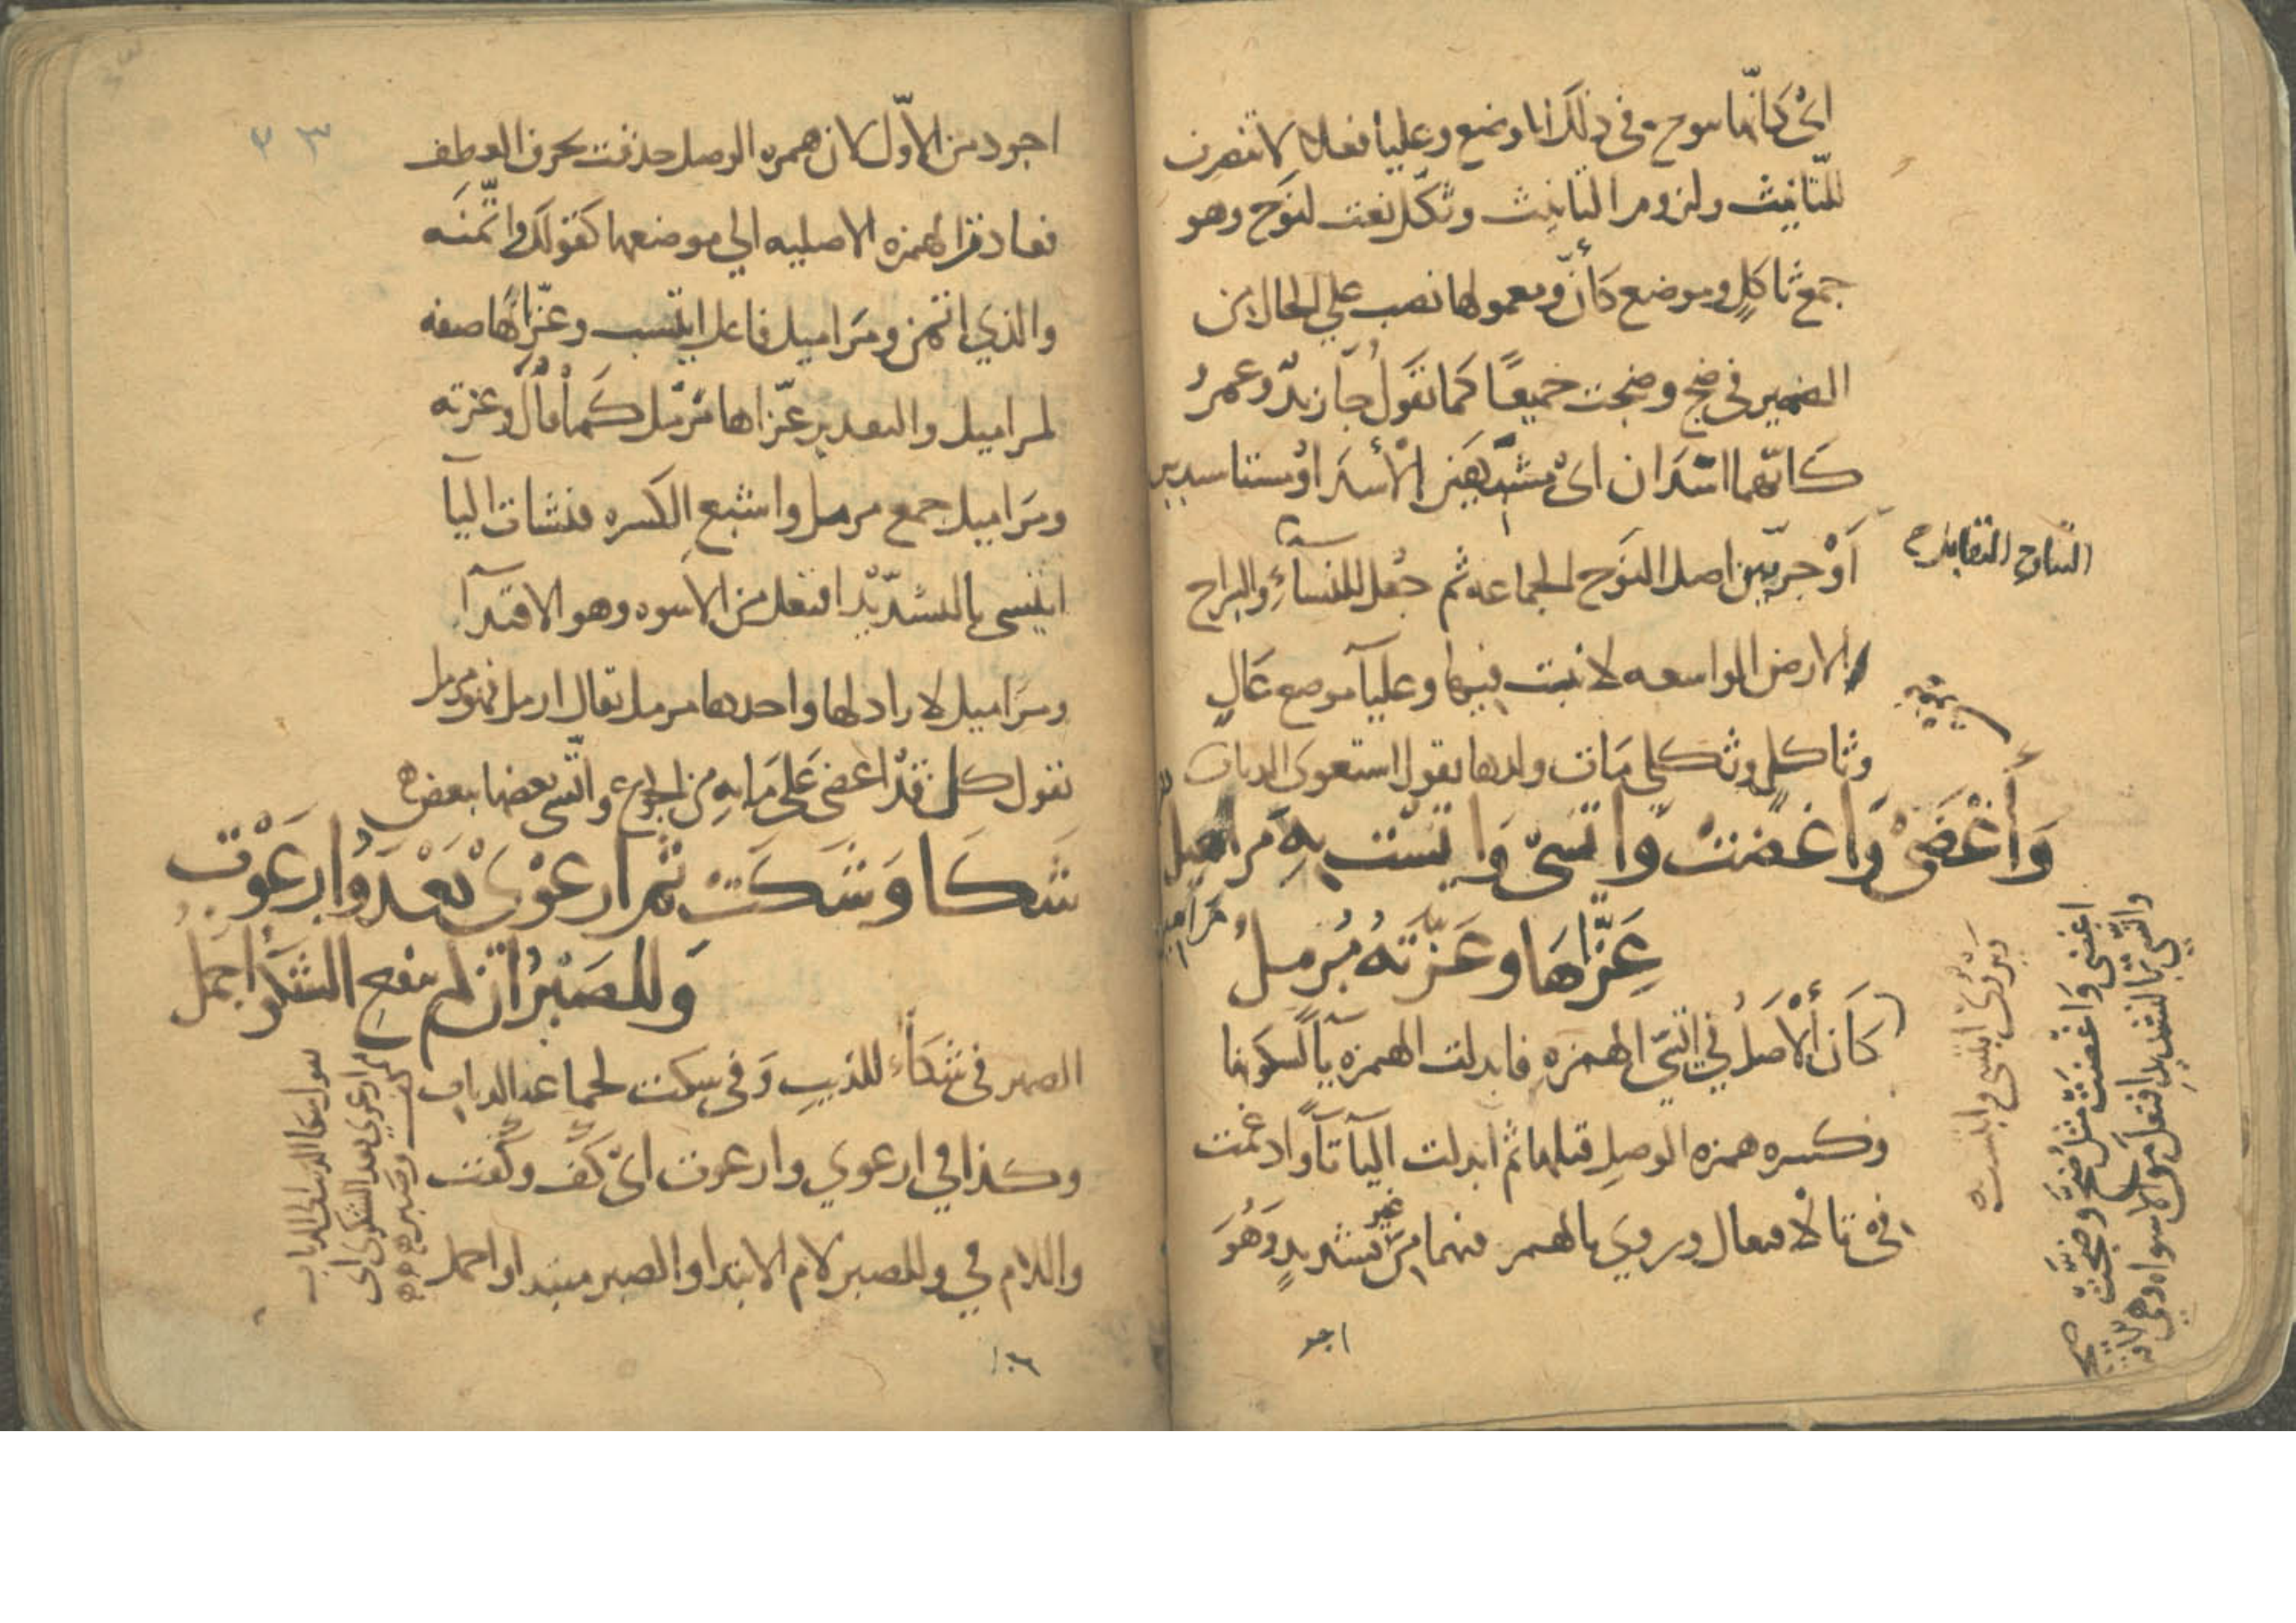 اىْ كَانّها نوح في ذلك الموضع وعليا فعلا لا تنصرف
للتّانيث ولزوم التانيث وثكّل نعت لنوح وهو
جمع ثاكلٍ وموضع كأنّ ومعمولها نصب علي الحال من
الضمير في ضج وضجت جميعًا كما تقول جا زيدٌ وعمرٌو
كانّهما اسَدان اىْ مشبهين الأسد او مستاسدين
أوْ جريّين اصل النوح الجماعه ثم جعل للنسآء والبراح
الارض الواسعه لا نبت فيها وعليآ موضع عالٍ
وثاكل وثكلي مَات ولدها يقول استعوى الذياب
وَأَغْضَىْ وَاغضتْ وَاتّسىّ وَاتّسّت بِهِ مراميل
عَزّاهَا وعَزّتهُ مُرملُ
كَان ألأصلُ في اتّسي الهمزه فابدلت الهمزه يآ لسكونها
وكسره همزه الوصل قبلها ثم ابدلت اليآ تآ وادغمت
في تا الافتعال وروي بالهمز فيهما من غير تشديدٍ وَهُوَ
اجو
النياح التقابل
مَراميل
يروى ايتسى وايتست
اغضى وَاغضت مثل ضج وضجت
واتّسي بالتشديد افتعل من الاسوه وهي
صح
٢٣
اجود من الاوّل لان همزه الوصل حذفت بحرف العطف
فعادت الهمزه الاصليه الي موضعها كقولك واتّمنَه
والذي ائتمن ومَراميل فاعل ايتسب وعزّاها صفه
لمراميل والتقدير عزّاها مُرمل كما قال وعزته
ومَراميل جمع مرمل واشبع الكسره فنشات اليآ
ايتسى بالتشديد افتعل من الاسوه وهو الاقتدآ
ومَراميل لا زاد لها واحدها مرمل يقال ارمل فهو مرمل
يقول كل قدْ اغضى عَلى مَا به مِن الجوع واتّسى بعضها ببعض
شَكَا وَشَكَتْ ثم ارعَوْى بَعْدُ وَارعَوْت
وَللصَبْرُ ان لم ينفع الشكوُ اجمل
الضمير في شكآ للذيب وَفي شكت لجماعه الذياب
وكذا في ارعوي وارعوت اىْ كَفّ وكّفت
واللام في وللصبر لام الابتدا والصبر مبتدا واجمل
ثم ارعوي بعد الشكوى اى
كفت وصبر
١٠٦